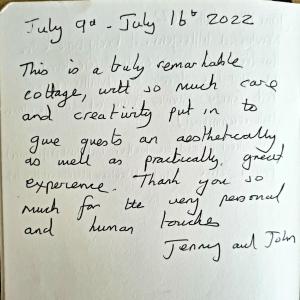 July 9th - July 16th 2022
This is a truly remarkable
cottage, with so much care
and creativity put in to
give guests an aesthetically
as well as practically, great
experience. Thank you so
much for the very personal
and human touches
Jenny and John